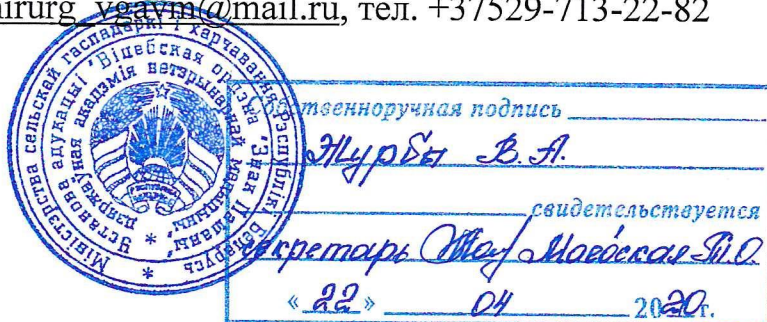 hirurg_vgavm@mail.ru, тел. +37529-713-22-82
Міністэрства сельскай гаспадаркі і харчавання Рэспублікі Беларусь
Установа адукацыі "Віцебская ордэна "Знак Пашаны" дзяржаўная акадэмія ветэрынарнай медыцыны"
Собственноручная подпись
Журбы В. А.
свидетельствуется
Секретарь
« 22 » 04 2020г.